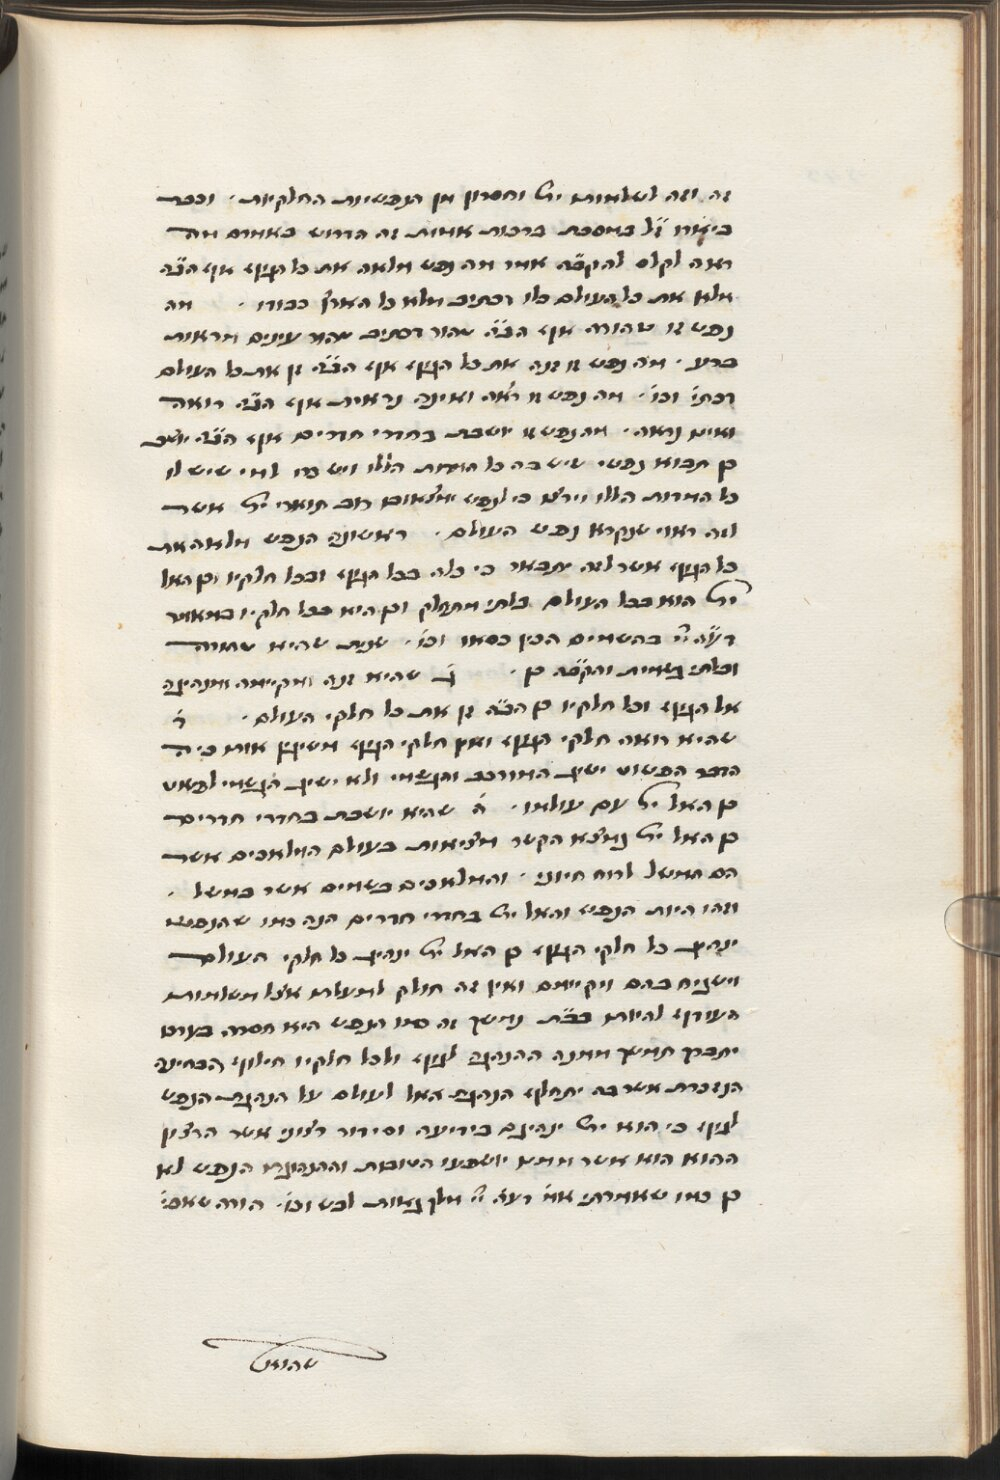 זה וזה לשלמותו ית' וחסרון מן הנפשיות החלקיות. וכבר
ביארו ז"ל במסכת ברכות אמתת זה הדרוש באמרם מה
ראה לקלס להקב"ה אמר מה נפש מלאה את כל הגוף אף הב"ה
מלא את כל העולם כלו דכתיב מלא כל הארץ כבודו. מה
נפש זו טהורה אף הב"ה טהור דכתיב טהור עינים מראות
ברע. מה נפש זו זנה את כל הגוף אף הב"ה זן את כל העולם
דכתי' וכו'. מה נפש זו רואה ואינה נראית אף הב"ה רואה
ואינו נראה. מה נפש זו יושבת בחדרי חדרים אף הב"ה יושב
תבוא נפשי שיש בה כל המדות הללו ותשבח למי שיש לו
כל המדות הללו וירצו כי לנפש ימצאום רוב תוארי ית' אשר
לזה ראוי שנקרא נפש העולם. ראשונה הנפש מלאה את
כל הגוף אשר לזה יתבאר כי כלה בכל הגוף ובכל חלקיו וכן האל
ית' הוא בכל העולם בלתי מתחלק וכן היא בכל חלקיו במאמר
דע"ה יי' בהשמים הכין כסאו וכו'. שנית שהיא טהורה
ובלתי גשמית והקב"ה כן. ג' שהיא זנה ומקיימה ומנהיגה
אל הגוף וכל חלקיו כן הב"ה זן את כל חלקי העולם. ד'
שהיא רואה חלקי הגוף ואין חלקי הגוף משיגין אותה כי ה
הדבר הפשוט ישיג המורכב והגשמי ולא ישיג הגשמי לפשוט
כן האל ית' עם עולמו. ה' שהיא יושבת בחדרי חדרים
כן האל ית' נמצא הקשר מציאות בעולם המלאכים אשר
הם המשל לרוח חיוני. והמלאכים בשמים אשר במשל.
וזהו היות הנפש והאל ית' בחדרי חדרים הנה כמו שהנפש
ינהיג כל חלקי הגוף כן האל ית' ינהיג כל חלקי העולם
וישגיח בהם ויקיימם ואין זה חולק למעלת אצל משלמות
העודף להיות בב"ת נמשך זה כמו הנפש היא חסרה בערכו
יתברך תמשך ממנה ההנהגה לגוף ולכל חלקיו חילוף הבחינה
הנזכרת אשר בה יתחלף הנהגת האל לעולם על הנהגת הנפש
לגוף כי הוא ית' ינהיגם בידיעה וסידור רצוני אשר הרצון
ההוא הוא אשר ממנו יושפעו הטובות וההנהגות הנפש לא
כן כמו שאמרתי אמ' דע"ה יי' מלך גאות לבש וכו'. הורה שאפי'
שהוא